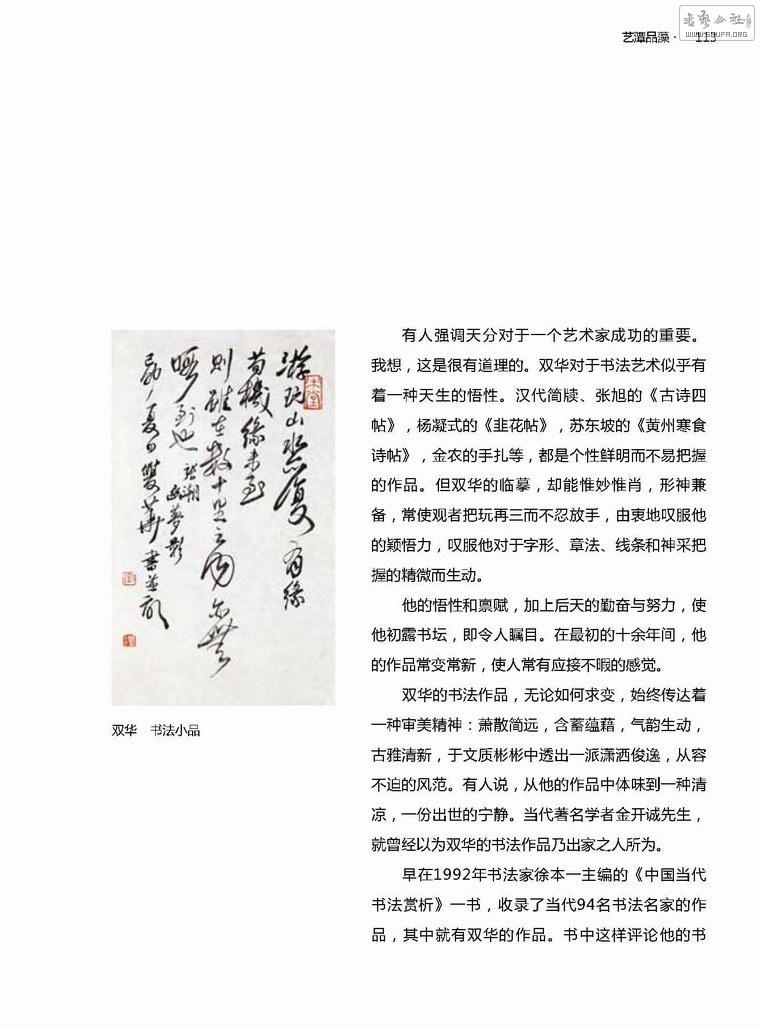 艺潭品藻· 113
書法公社
WWW.SHUFA.ORG
游玩山水復有緣
苟機緣未至
則雖在數十里之內亦無
暇到也 張潮幽夢影
己卯夏日雙華書並記
双华 书法小品
有人强调天分对于一个艺术家成功的重要。
我想，这是很有道理的。双华对于书法艺术似乎有
着一种天生的悟性。汉代简牍、张旭的《古诗四
帖》，杨凝式的《韭花帖》，苏东坡的《黄州寒食
诗帖》，金农的手扎等，都是个性鲜明而不易把握
的作品。但双华的临摹，却能惟妙惟肖，形神兼
备，常使观者把玩再三而不忍放手，由衷地叹服他
的颖悟力，叹服他对于字形、章法、线条和神采把
握的精微而生动。
他的悟性和禀赋，加上后天的勤奋与努力，使
他初露书坛，即令人瞩目。在最初的十余年间，他
的作品常变常新，使人常有应接不暇的感觉。
双华的书法作品，无论如何求变，始终传达着
一种审美精神：萧散简远，含蓄蕴藉，气韵生动，
古雅清新，于文质彬彬中透出一派潇洒俊逸，从容
不迫的风范。有人说，从他的作品中体味到一种清
凉，一份出世的宁静。当代著名学者金开诚先生，
就曾经以为双华的书法作品乃出家之人所为。
早在1992年书法家徐本一主编的《中国当代
书法赏析》一书，收录了当代94名书法名家的作
品，其中就有双华的作品。书中这样评论他的书